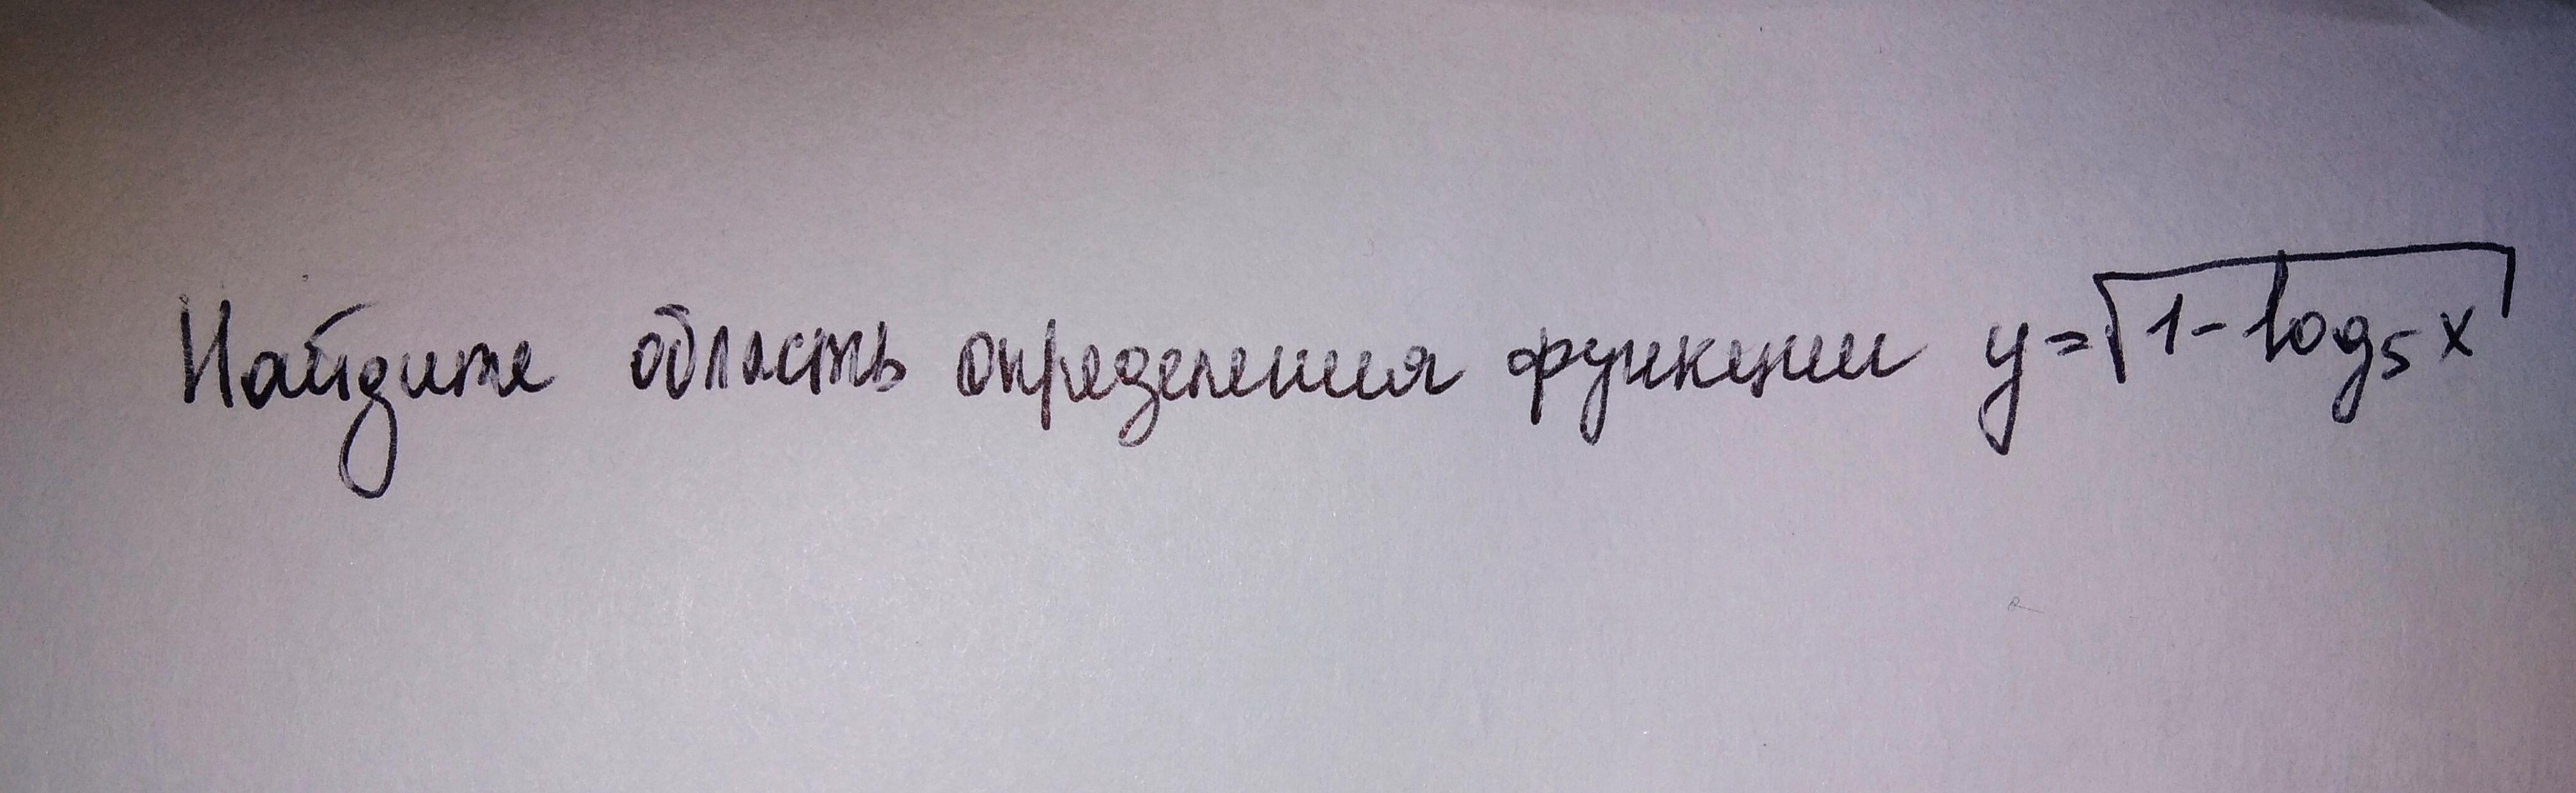 Найдите область определения функции y=√1-log₅x